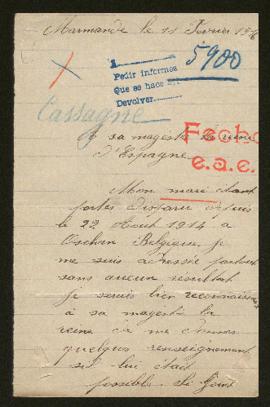 Marmande le 11 Février 1916
5900
Pedir informes
Que se hace
Devolver
Cassagne
a sa magesté la reine
d'Espagne
Fecho
e.a.e.
Mon mari étant
portés disparu depuis
le 22 Aout 1914 a
Ochan Belgique, je
me suis adressée partout
sans aucun résultat
je serais bien reconnaissante
à sa magesté la
reine de me donner
quelques renseignement
si lui était
possible. Ci Joint